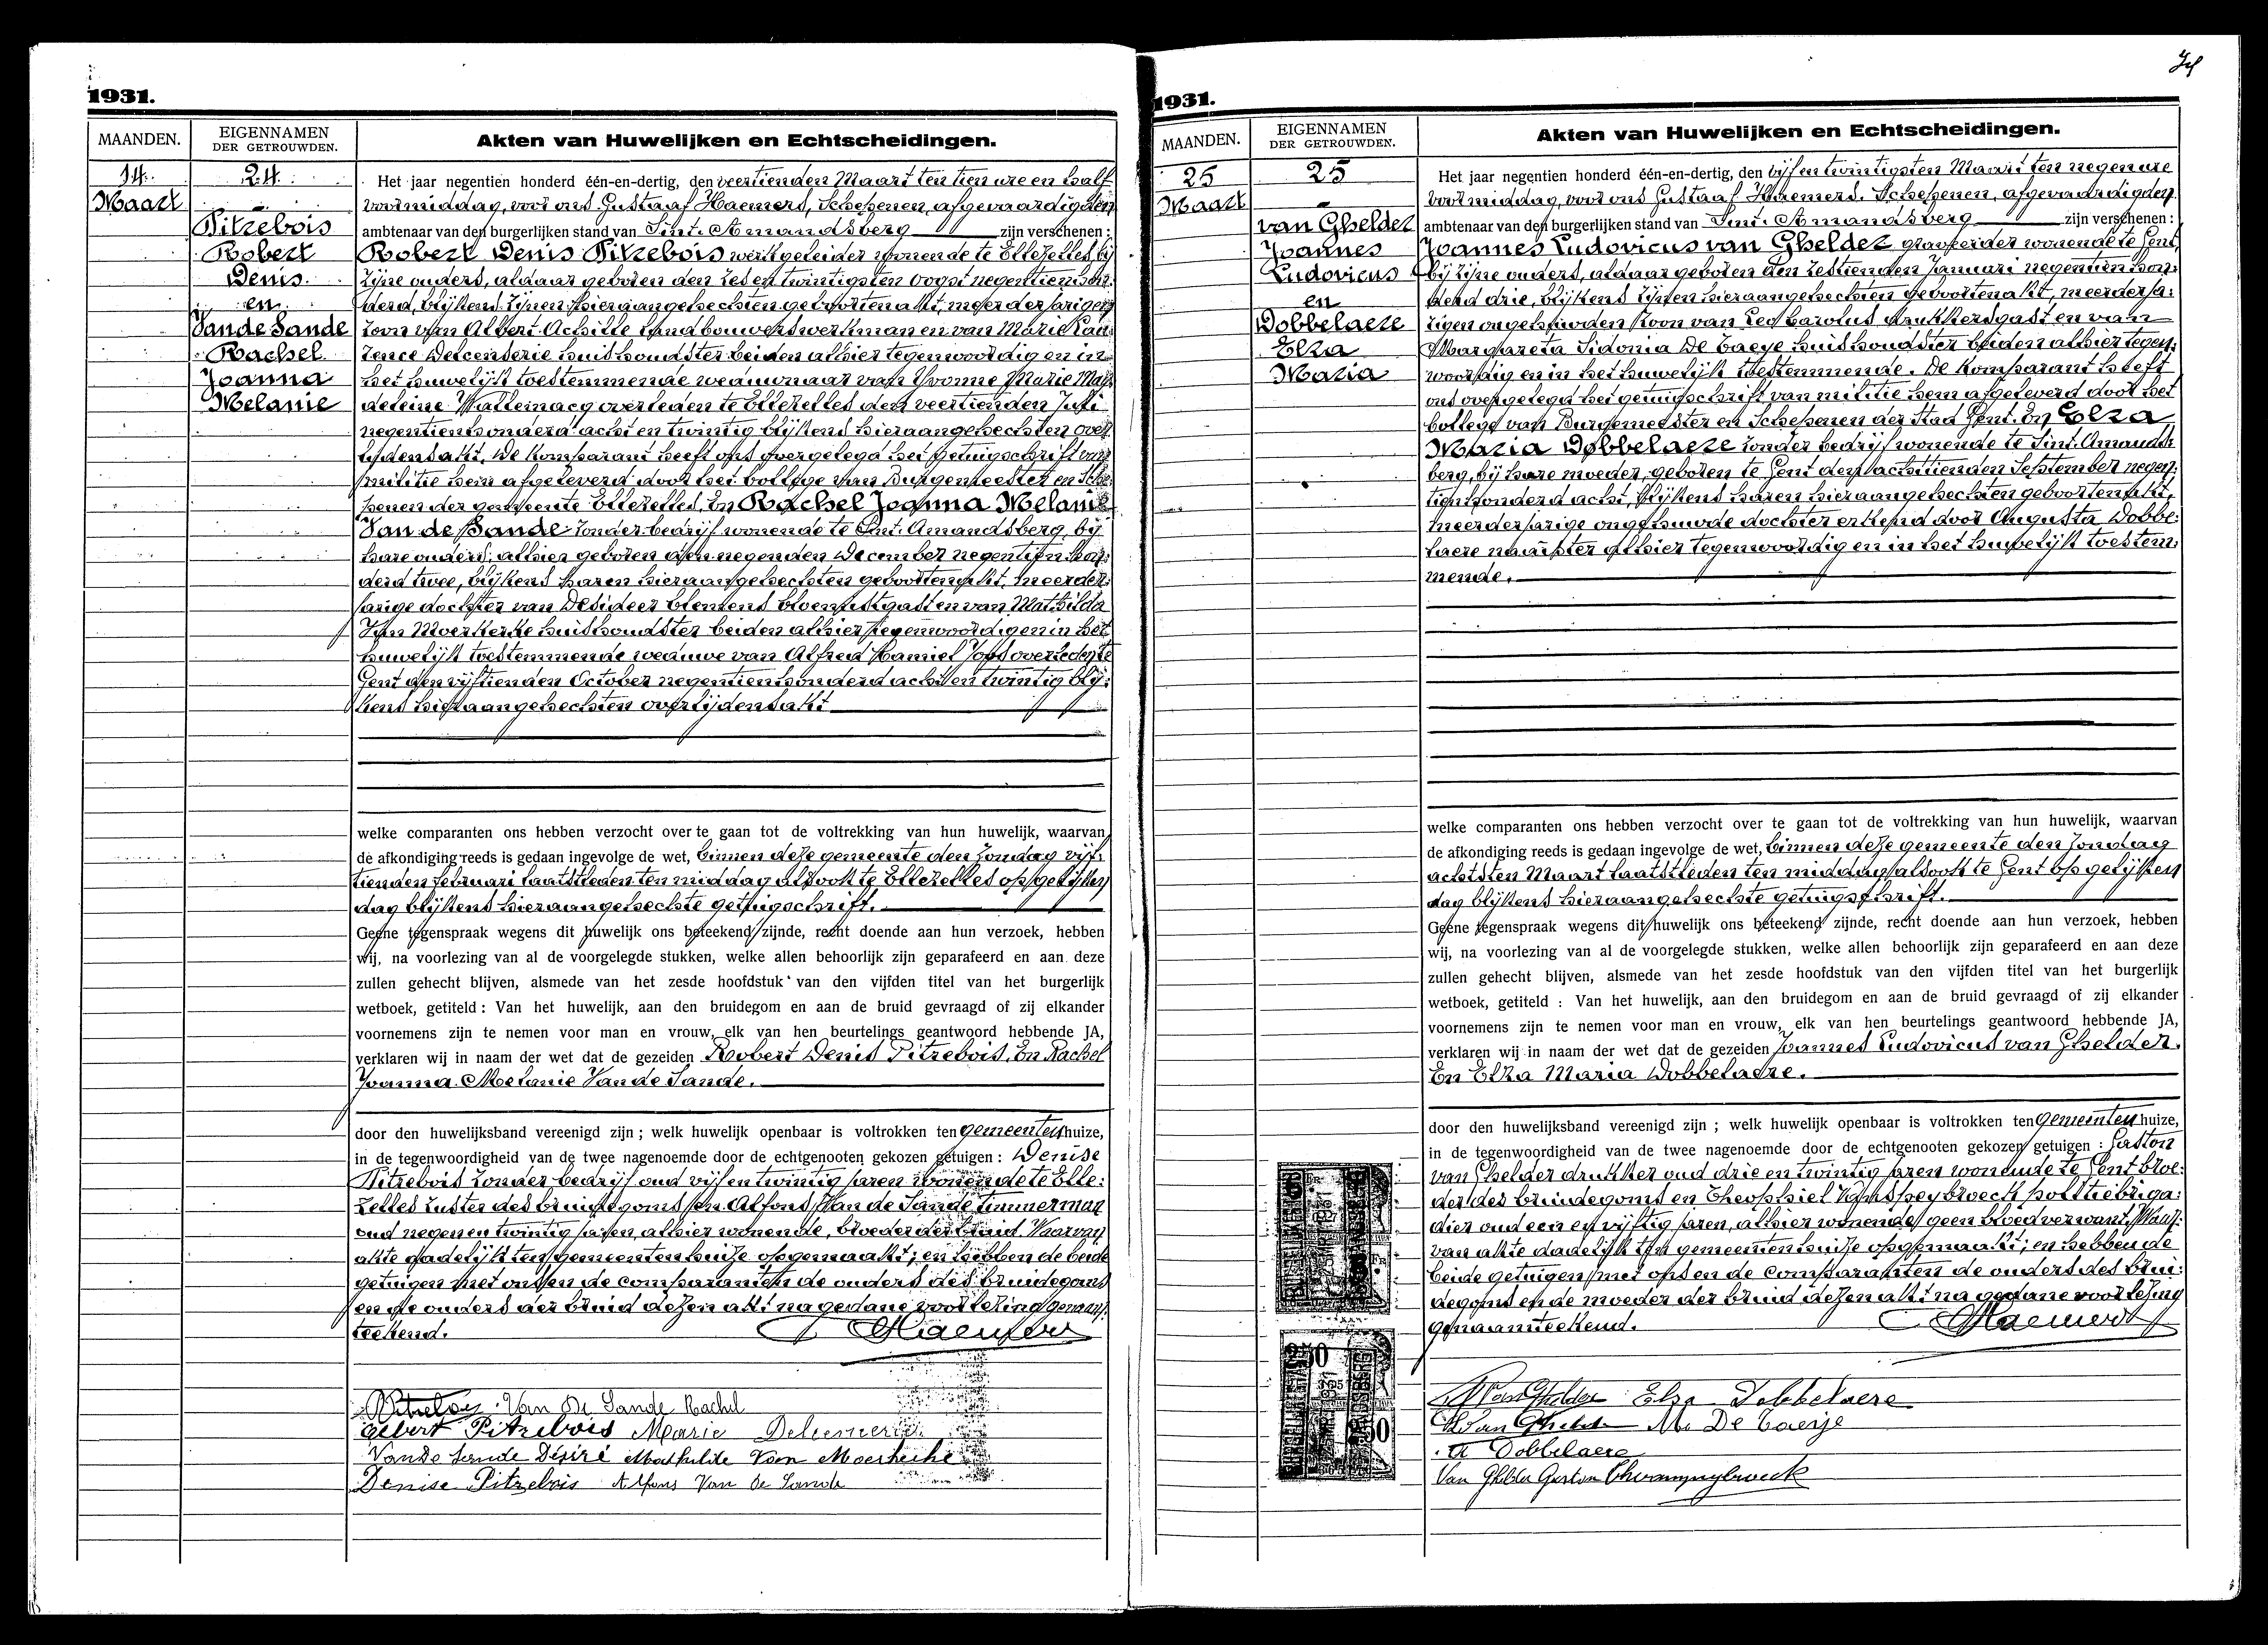 1931.
MAANDEN.
EIGENNAMEN
DER GETROUWDEN.
Akten van Huwelijken en Echtscheidingen.
14.
Maart
24.
Pitzebois
Robert
Denis
en
Vande Sande
Rachel
Joanna
Melanie
Het jaar negentien honderd één-en-dertig, den veertienden Maart ten tien ure en half
voormiddag, voor ons Gustaaf Haemers, Schepenen, afgevaardigden
ambtenaar van den burgerlijken stand van Sint-Amandsberg zijn verschenen :
Robert Denis Pitzebois werkgeleider wonende te Ellezelles, bij
zijne ouders, aldaar geboren den zes en twintigsten oogst negentien hon-
derd, blijkens zijnen hieraangehechten geboortenakt, meerderjarigen
zoon van Albert Achille landbouwerswerkman en van Marie Lau-
rence Delcenserie huishoudster beiden alhier tegenwoordig en in
het huwelijk toestemmende weduwnaar van Yvonne Marie Mag-
deleine overleden te Ellezelles den veertienden Juli
negentienhonderd acht en twintig blijkens hieraangehechten over-
lijdensakt. De komparant heeft ons overgelegd het getuigschrift van
militie hem afgeleverd door het College van Burgemeester en Sche-
penen der gemeente Ellezelles. En Rachel Joanna Melanie
Van de Sande zonder bedrijf wonende te Sint-Amandsberg, bij
hare ouders, alhier geboren den negenden December negentien hon-
derd twee, blijkens haren hieraangehechten geboortenakt, meerder-
jarige dochter van Desideer Clemens bloemistgast en van Mathilda
Van Moerkerke huishoudster beiden alhier tegenwoordig en in het
huwelijk toestemmende weduwe van Alfred Kamiel overleden te
Gent den vijftienden October negentienhonderd acht en twintig blij-
kens hieraangehechten overlijdensakt
welke comparanten ons hebben verzocht over te gaan tot de voltrekking van hun huwelijk, waarvan
de afkondiging reeds is gedaan ingevolge de wet, binnen deze gemeente den Zondag vijf-
tienden februari laatstleden ten middag alsook te Ellezelles op gelijken
dag blijkens hieraangehechte getuigschrift.
Geene tegenspraak wegens dit huwelijk ons beteekend zijnde, recht doende aan hun verzoek, hebben
wij, na voorlezing van al de voorgelegde stukken, welke allen behoorlijk zijn geparafeerd en aan deze
zullen gehecht blijven, alsmede van het zesde hoofdstuk van den vijfden titel van het burgerlijk
wetboek, getiteld : Van het huwelijk, aan den bruidegom en aan de bruid gevraagd of zij elkander
voornemens zijn te nemen voor man en vrouw, elk van hen beurtelings geantwoord hebbende JA,
verklaren wij in naam der wet dat de gezeiden Robert Denis Pitzebois. En Rachel
Joanna Melanie Van de Sande.
door den huwelijksband vereenigd zijn ; welk huwelijk openbaar is voltrokken ten gemeentenhuize,
in de tegenwoordigheid van de twee nagenoemde door de echtgenooten gekozen getuigen : Denise
Pitzebois zonder bedrijf oud vijf en twintig jaren wonende te Elle-
zelles zuster des bruidegoms en Alfons Van de Sande timmerman
oud negen en twintig jaren, alhier wonende, broeder der bruid. Waarvan
akte dadelijk ten gemeentenhuize opgemaakt; en hebben de beide
getuigen met ons en de comparanten de ouders des bruidegoms
en de ouders der bruid dezen akt na gedane voorlezing genaam-
teekend. Haemers
Pitzebois Van De Sande Rachel
Albert Pitzebois Marie Delcenserie
Van de Sande Désiré Mathilde Van Moerkerke
Denise Pitzebois Alfons Van De Sande
1931.
MAANDEN.
EIGENNAMEN
DER GETROUWDEN.
Akten van Huwelijken en Echtscheidingen.
25
Maart
25
van Ghelder
Joannes
Ludovicus
en
Dobbelaere
Elza
Maria
Het jaar negentien honderd één-en-dertig, den vijf en twintigsten Maart ten negen ure
voormiddag, voor ons Gustaaf Haemers, Schepenen, afgevaardigden
ambtenaar van den burgerlijken stand van Sint-Amandsberg zijn verschenen :
Joannes Ludovicus van Ghelder graveerder wonende te Gent,
bij zijne ouders, aldaar geboren den zestienden Januari negentien hon-
derd drie, blijkens zijnen hieraangehechten geboortenakt, meerderja-
rigen ongehuwden zoon van Leo Carolus drukkersgast en van
Margareta Sidonia De Caeye huishoudster beiden alhier tegen-
woordig en in het huwelijk toestemmende. De komparant heeft
ons overgelegd het getuigschrift van militie hem afgeleverd door het
College van Burgemeester en Schepenen der stad Gent. En Elza
Maria Dobbelaere zonder bedrijf wonende te Sint-Amands-
berg, bij hare moeder, geboren te Gent den achttienden September negen-
tienhonderd acht, blijkens haren hieraangehechten geboortenakt,
meerderjarige ongehuwde dochter erkend door Augusta Dobbe-
laere naaister alhier tegenwoordig en in het huwelijk toestem-
mende.
welke comparanten ons hebben verzocht over te gaan tot de voltrekking van hun huwelijk, waarvan
de afkondiging reeds is gedaan ingevolge de wet, binnen deze gemeente den Zondag
achtsten Maart laatstleden ten middag alsook te Gent op gelijken
dag blijkens hieraangehechte getuigschrift.
Geene tegenspraak wegens dit huwelijk ons beteekend zijnde, recht doende aan hun verzoek, hebben
wij, na voorlezing van al de voorgelegde stukken, welke allen behoorlijk zijn geparafeerd en aan deze
zullen gehecht blijven, alsmede van het zesde hoofdstuk van den vijfden titel van het burgerlijk
wetboek, getiteld : Van het huwelijk, aan den bruidegom en aan de bruid gevraagd of zij elkander
voornemens zijn te nemen voor man en vrouw, elk van hen beurtelings geantwoord hebbende JA,
verklaren wij in naam der wet dat de gezeiden Joannes Ludovicus van Ghelder.
En Elza Maria Dobbelaere.
door den huwelijksband vereenigd zijn ; welk huwelijk openbaar is voltrokken ten gemeentenhuize,
in de tegenwoordigheid van de twee nagenoemde door de echtgenooten gekozen getuigen : Gaston
van Ghelder drukker oud drie en twintig jaren wonende te Gent broe-
der des bruidegoms en Theophiel Vanspeybroeck politiebriga-
dier oud een en vijftig jaren, alhier wonende, geen bloedverwant. Waar-
van akte dadelijk ten gemeentenhuize opgemaakt; en hebben de
beide getuigen met ons en de comparanten de ouders des brui-
degoms en de moeder der bruid dezen akt na gedane voorlezing
genaamteekend. Haemers
Van Ghelder Elza Dobbelaere
Van Ghelder M. De Caeye
A Dobbelaere
Van Ghelder Gaston